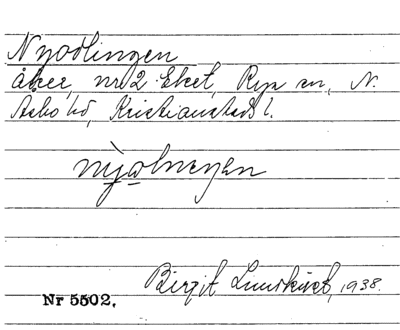 Nyodlingen
åker, nr 2 Eket, Rya sn, N.
Åsbo hd, Kristianstads l.
Birgit 1938.
Nr 5502.